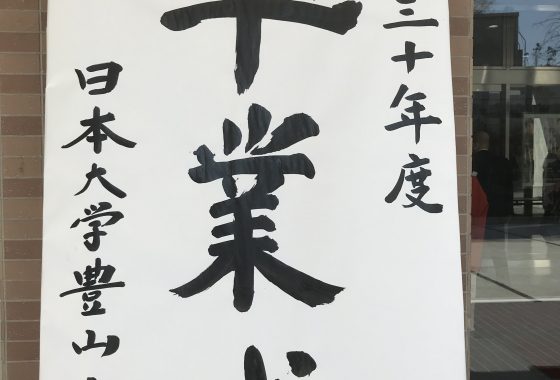 三十年度
業
日本大学豊山